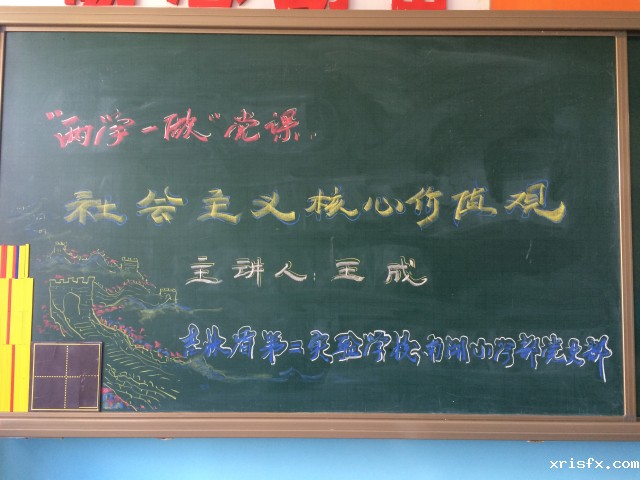 "两学一做"党课
社会主义核心价值观
主讲人：王成
吉林省第二实验学校南湖小学部党支部
xrisfx.com